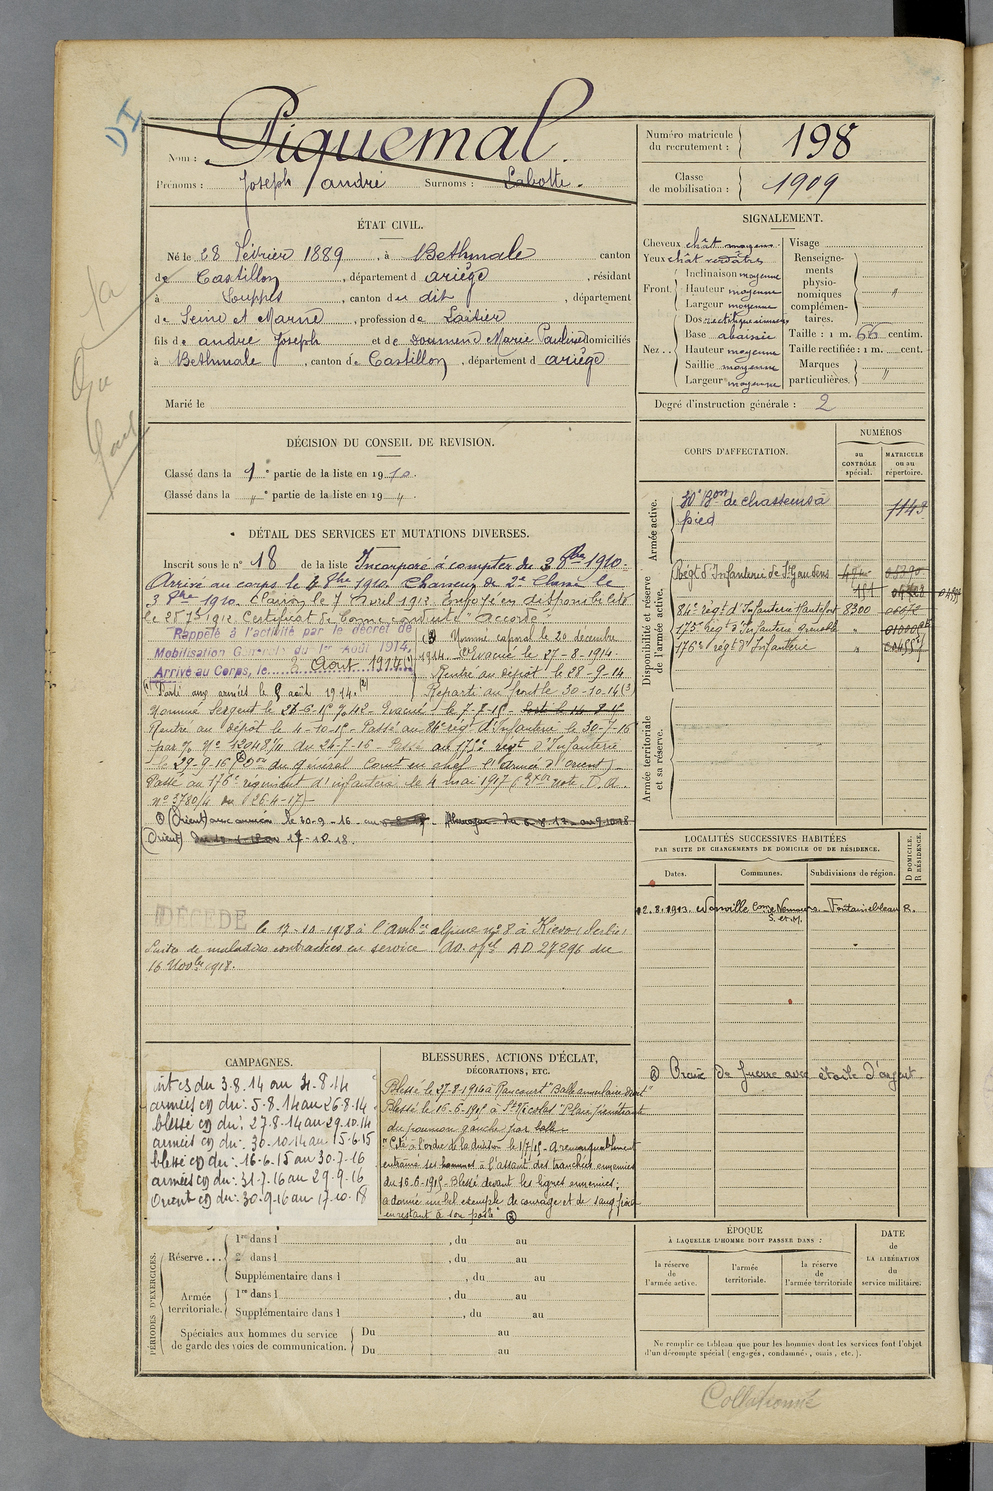 DI
Nom : Piquemal.
Prénoms : Joseph André Surnoms : Cabotte.
Numéro matricule du recrutement : 198
Classe de mobilisation : 1909
ÉTAT CIVIL.
Né le 28 février 1889, à Bethmale canton
de Castillon, département d ariège, résidant
à Souppes, canton du dit, département
de Seine et Marne, profession de Laitier
fils de andré Joseph et de Doumenc Marie Pauline domiciliés
à Bethmale, canton de Castillon, département d ariège
Marié le
SIGNALEMENT.
Cheveux chât moyens
Yeux chât
Front. Inclinaison moyenne
Hauteur moyenne
Largeur moyenne
Nez.. Dos rectiligne sinueux
Base abaissée
Hauteur moyenne
Saillie moyenne
Largeur moyenne
Visage
Renseignements physionomiques complémentaires. "
Taille : 1 m. 66 centim.
Taille rectifiée : 1 m. cent.
Marques particulières. "
Degré d'instruction générale : 2
DÉCISION DU CONSEIL DE REVISION.
Classé dans la 1e partie de la liste en 1910.
Classé dans la " e partie de la liste en 19 ".
DÉTAIL DES SERVICES ET MUTATIONS DIVERSES.
Inscrit sous le n° 18 de la liste Incorporé à compter du 3 8bre 1910.
Arrivé au corps le 8bre 1910. Chasseur de 2e Classe le
3 8bre 1910. Clairon le 7 avril 1912. Envoyé en disponibilité
le 25 7bre 1912. Certificat de bonne conduite "Accordé".
Rappelé à l'activité par le décret de
Mobilisation Générale du 1er Août 1914,
Arrivé au Corps, le 3 Août 1914 (1)
(1) Parti aux armées le 5 août 1914. (2)
(2) Nommé caporal le 20 décembre
1914. Evacué le 27-8-1914.
Rentré au dépôt le 28-9-14
Reparti au front le 30-10-14 (3)
Nommé Sergent le 26-5-15 Evacué le 7-8-15
Rentré au dépôt le 4-10-15 - Passé au 84e régt d'Infanterie le 30-7-16
par N° 12048/11 du 26-7-16 - Passé au 175e régt d'Infanterie
le 29-9-16 Don du Général Comt en chef l'armée d'Orient)
Passé au 176e régiment d'infanterie le 4 mai 1917 note D.A.
n° 3780/4 du 26-4-17)
(Orient) aux armées le 30-9-16 - au
(Orient) 17-10-18.
DÉCÉDÉ
le 17-10-1918 à l'Ambce alpine n° 8 à Kievo (Serbie)
Suites de maladies contractées en service av. offel AD 27296 du
16 Novbre 1918.
CORPS D'AFFECTATION.
NUMÉROS
au CONTRÔLE spécial.
MATRICULE ou au répertoire.
Armée active.
30e Bon de chasseurs à
pied 1143
Disponibilité et réserve de l'armée active.
Régt d'Infanterie de St Gaudens
84e régt d'Infanterie 8300
175e régt d'Infanterie Grenoble
176e régt d'Infanterie "
Armée territoriale et sa réserve.
LOCALITÉS SUCCESSIVES HABITÉES
PAR SUITE DE CHANGEMENTS DE DOMICILE OU DE RÉSIDENCE.
Dates. Communes. Subdivisions de région. D DOMICILE. R RÉSIDENCE.
12.8.1913. Nonville Cne Nemours S. et M. Fontainebleau R.
CAMPAGNES.
int cs du 3.8.14 au 4.8.14
armées c) du: 5.8.14 au 26.8.14
blessé c) du: 27.8.14 au 29.10.14
armées c) du: 30.10.14 au 15.6.15
blessé c) du: 16.6.15 au 30.7.16
armées c) du: 31.7.16 au 29.9.16
Orient c) du: 30.9.16 au 17.10.18
BLESSURES, ACTIONS D'ÉCLAT,
DÉCORATIONS, ETC.
Blessé le 27-8-1914 à Raucourt "Balle annulaire droit"
Blessé le 16-6-1915 à "Plaie pénétrante
du poumon gauche par balle
"Cité à l'ordre de la division le 1/7/15 - A remarquablement
entraîné ses hommes à l'assaut des tranchées ennemies
du 16-6-1915 - Blessé devant les lignes ennemies,
a donné un bel exemple de courage et de sang froid
en restant à son poste"
Croix de Guerre avec étoile d'argent.
PÉRIODES D'EXERCICES.
Réserve... 1re dans l , du au
2e dans l , du au
Supplémentaire dans l , du au
Armée territoriale. 1re dans l , du au
Supplémentaire dans l , du au
Spéciales aux hommes du service de garde des voies de communication. Du au
Du au
ÉPOQUE
À LAQUELLE L'HOMME DOIT PASSER DANS :
la réserve de l'armée active.
l'armée territoriale.
la réserve de l'armée territoriale
DATE de LA LIBÉRATION du service militaire.
Ne remplir ce tableau que pour les hommes dont les services font l'objet
d'un décompte spécial (engagés, condamnés, omis, etc.).
Collationné